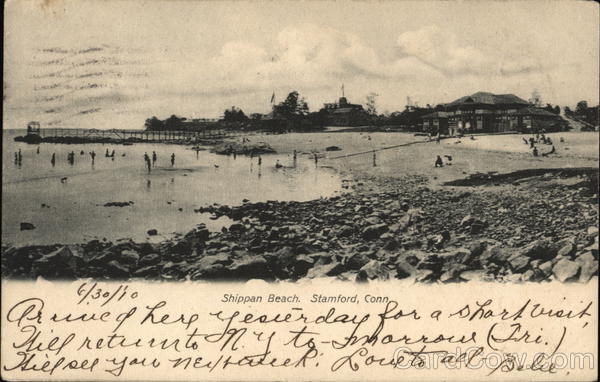 6/30/10
Shippan Beach. Stamford, Conn.
Arrived here yesterday for a short visit,
Will return to N.Y. to-morrow (Fri.)
Will see you next week. Love to all
CardCow.com